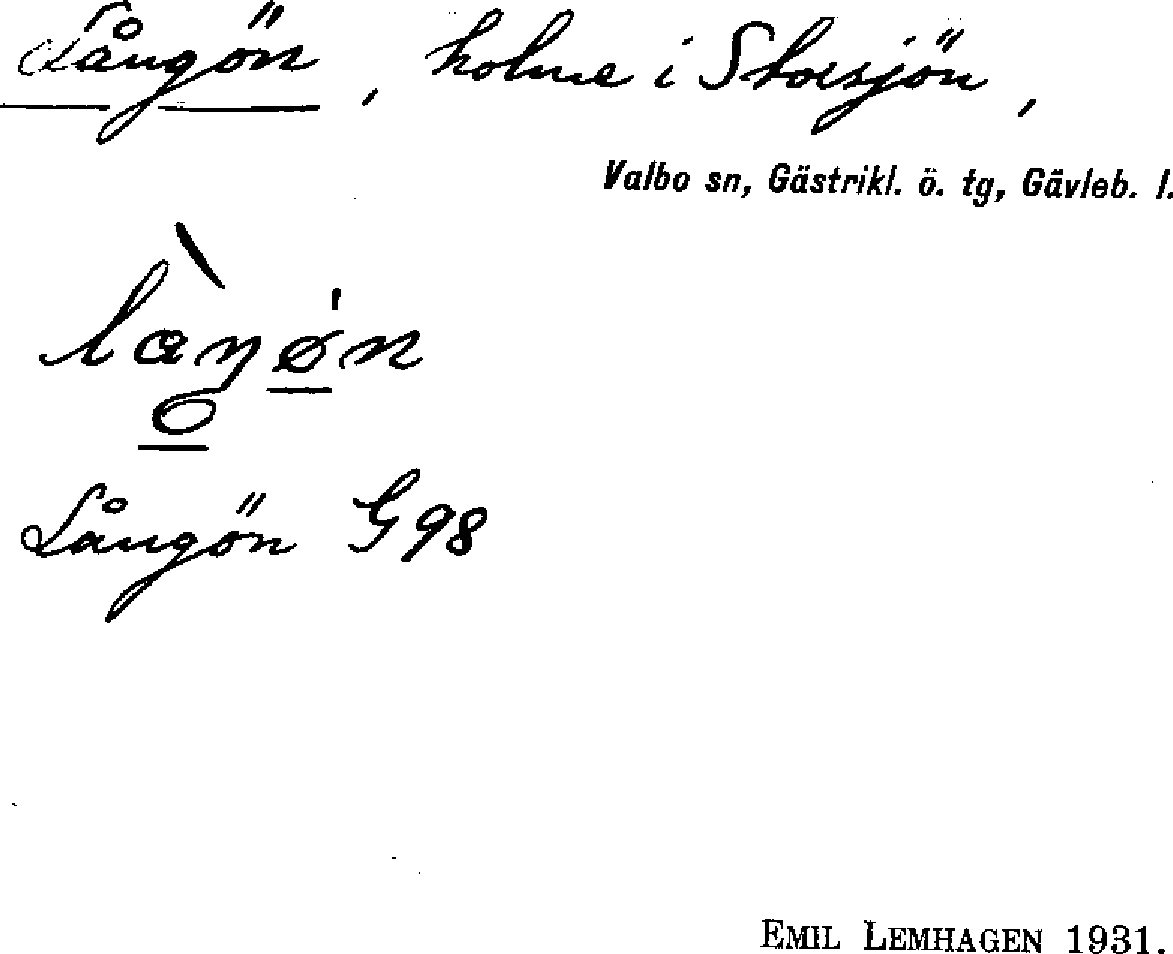 Långön, holme i Storsjön,
Valbo sn, Gästrikl. ö. tg, Gävleb. l.
Långön G 98
EMIL LEMHAGEN 1931.